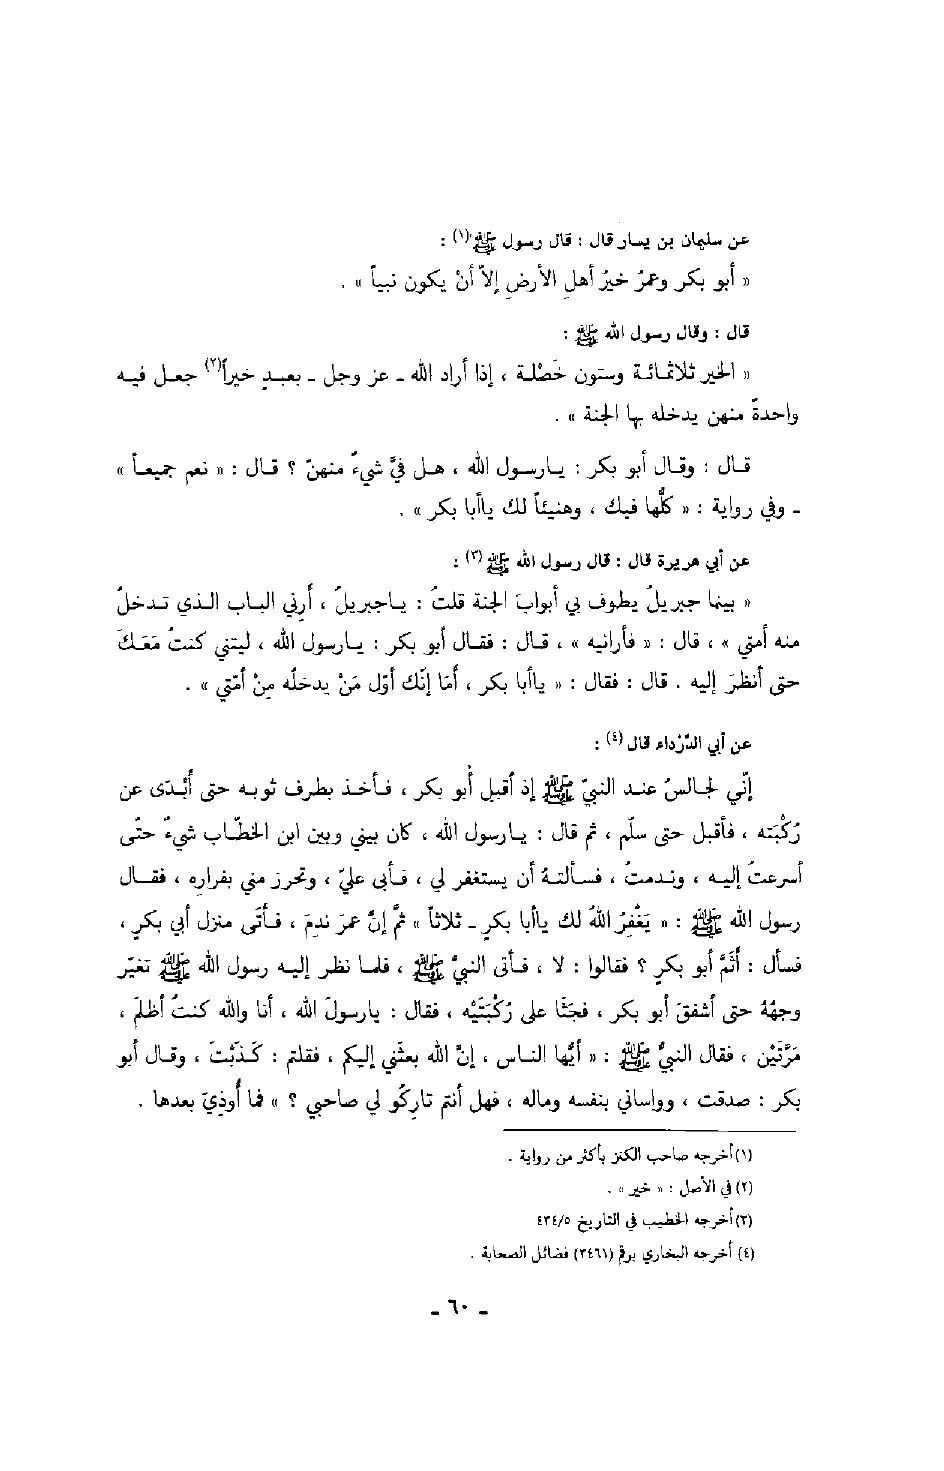 عن سليمان بن يسار قال : قال رسول ﷺ(١) :
« أبو بكر وعمرُ خيرُ أهلِ الأرضِ إلاّ أنْ يكون نبياً » .
قال : وقال رسول الله ﷺ :
« الخير ثلاثمائـة وستون خَصْلـة ، إذا أراد الله ـ عز وجل ـ بعبـدٍ خيراً(٢) جعـل فيـه
واحدةً منهن يدخله بها الجنة » .
قـال : وقـال أبو بكر : يـارسول الله ، هـل فيَّ شيءٌ منهنّ ؟ قـال : « نعم جميعـاً »
ـ وفي رواية : « كلُّها فيك ، وهنيئاً لك ياأبا بكر » .
عن أبي هريرة قال : قال رسول الله ﷺ (٣) :
« بينما جبريلُ يطوف بي أبوابَ الجنة قلتُ : يـاجبريلُ ، أَرِني البـاب الـذي تـدخـلُ
منه أمتي » ، قال : « فأرانيه » ، قـال : فقـال أبو بكر : يـارسول الله ، ليتني كنتُ مَعَـكَ
حتى أنظرَ إليه . قال : فقال : « ياأبا بكر ، أَمَا إنّك أوّل مَنْ يدخلُه مِنْ أمّتي » .
عن أبي الدَّرْداء قال(٤) :
إنّي لجالسٌ عنـد النبيّ ﷺ إذ أقبل أبو بكر ، فـأخـذ بطرف ثوبـه حتى أَبْـدَى عن
رُكْبَته ، فأقبل حتى سلّم ، ثم قال : يـارسول الله ، كان بيني وبين ابن الخطّـاب شيءٌ حتّى
أسرعتُ إليـه ، ونـدمتُ ، فسـألتـهُ أن يستغفر لي ، فـأبى عليّ ، وتحرز مني بفراره ، فقـال
رسول الله ﷺ : « يَغْفِرُ اللهُ لك ياأبا بكرٍ ـ ثلاثاً » ثمَّ إنَّ عمرَ ندِمَ ، فـأتَى منزل أبي بكرٍ ،
فسأل : أَثَمَّ أبو بكرٍ ؟ فقالوا : لا ، فـأتى النبيَّ ﷺ ، فلمـا نظر إليـه رسول الله ﷺ تغيّر
وجهُهُ حتى أشفقَ أبو بكر ، فجَثَا على رُكْبَتَيْه ، فقال : يارسولَ الله ، أنا والله كنتُ أظلمَ ،
مَرَّتَيْن ، فقال النبيُّ ﷺ : « أيُّها النـاس ، إنَّ الله بعثَني إليكم ، فقلتم : كَـذَبْتَ ، وقـال أبو
بكر : صدقت ، وواساني بنفسه وماله ، فهل أنتم تاركو لي صاحبي ؟ » فما أُوذيَ بعدها .
(١) أخرجه صاحب الكنز بأكثر من رواية .
(٢) في الأصل : « خير » .
(٣) أخرجه الخطيب في التاريخ ٤٣٤/٥
(٤) أخرجه البخاري برقم (٣٤٦١) فضائل الصحابة .
ـ ٦٠ ـ